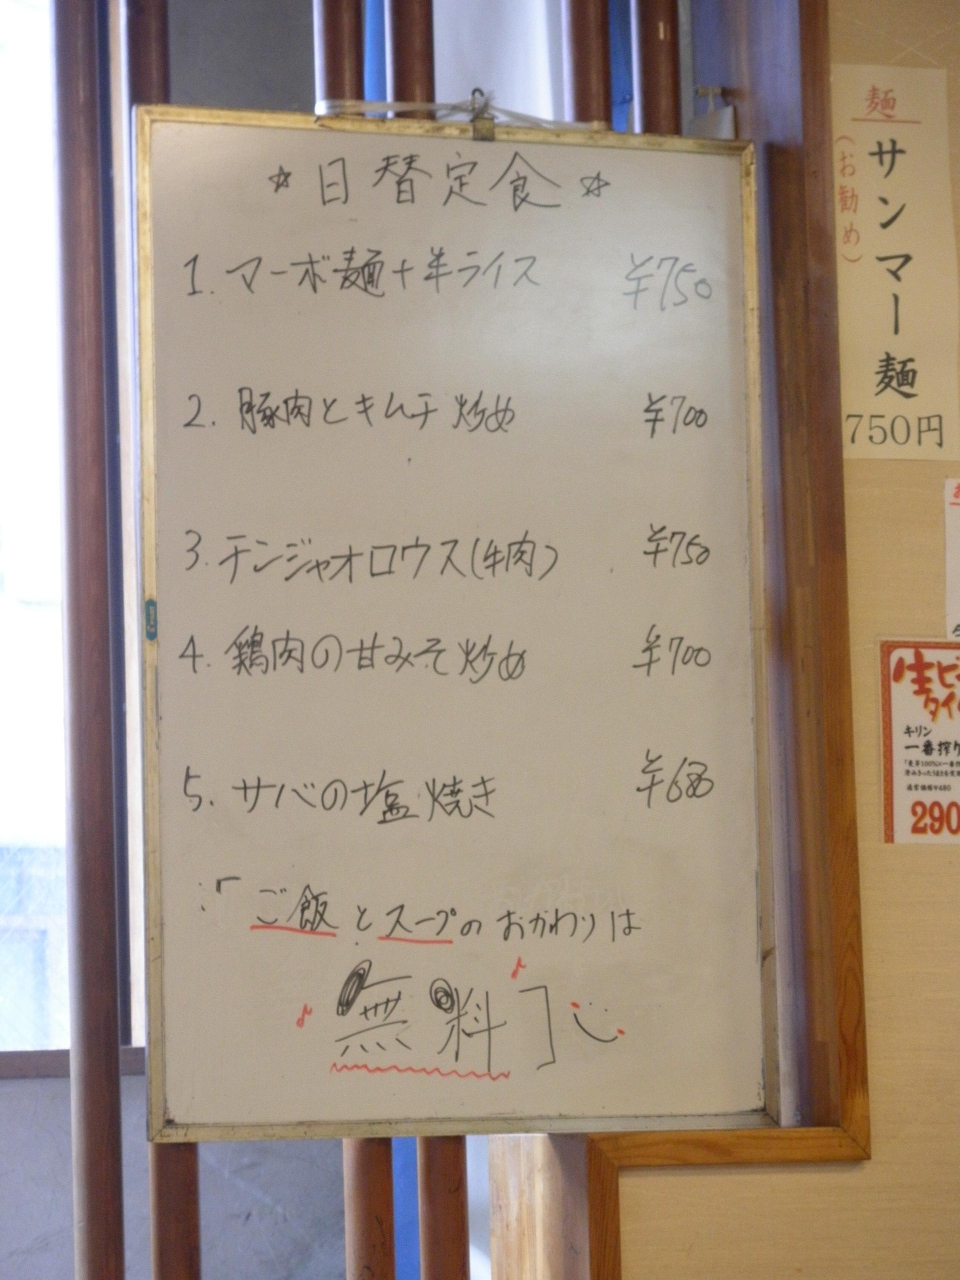 ☆日替定食☆
1. マーボ麺+半ライス ¥750
2. 豚肉とキムチ炒め ¥700
3. チンジャオロウス(牛肉) ¥750
4. 鶏肉の甘みそ炒め ¥700
5. サバの塩焼き ¥680
「ご飯とスープのおかわりは
♪無料♪」
麺
(お勧め)
サンマー麺
750円
生ビ
タイ
キリン
一番搾り
通常価格¥480
290